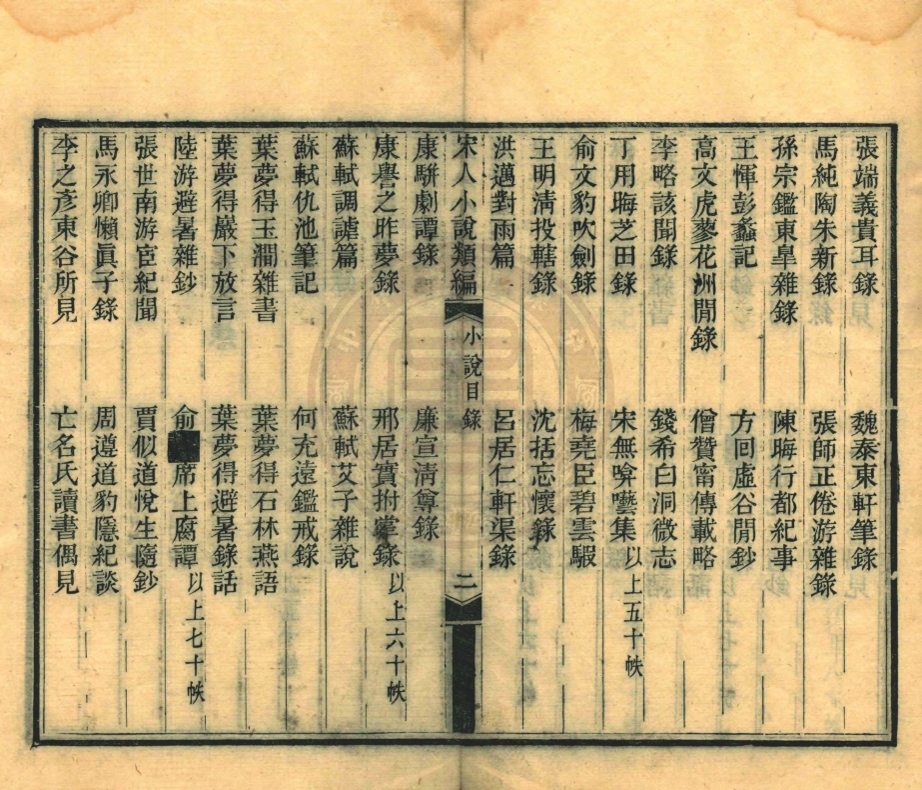 張端義貴耳錄 魏泰東軒筆錄
馬純陶朱新錄 張師正倦游雜錄
孫宗鑑東臯雜錄 陳晦行都紀事
王惲彭蠡記 方回虛谷閒鈔
高文虎蓼花洲閒錄 僧贊甯傳載略
李略該聞錄 錢希白洞微志
丁用晦芝田錄 宋無唫囈集以上五十帙
俞文豹吹劍錄 梅堯臣碧雲騢
王明清投轄錄 沈括忘懷錄
洪邁對雨篇 呂居仁軒渠錄
宋人小說類編 小說目錄 二
康駢劇譚錄 廉宣清尊錄
康譽之昨夢錄 邢居實拊掌錄以上六十帙
蘇軾調謔篇 蘇軾艾子雜說
蘇軾仇池筆記 何充遠鑑戒錄
葉夢得玉澗雜書 葉夢得石林燕語
葉夢得巖下放言 葉夢得避暑錄話
陸游避暑雜鈔 俞席上腐譚以上七十帙
張世南游宦紀聞 賈似道悅生隨鈔
馬永卿懶眞子錄 周遵道豹隱紀談
李之彥東谷所見 亡名氏讀書偶見